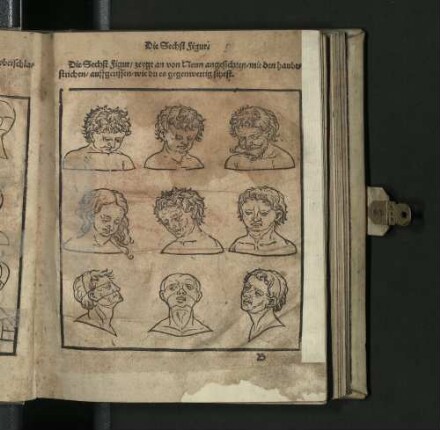 Die Sechst Figur/
Die Sechst Figur/ zeygt an von Neun angesichten/ mit den haubt
strichen/ auffgerissen/ wie du es gegenwertig sihest.
B